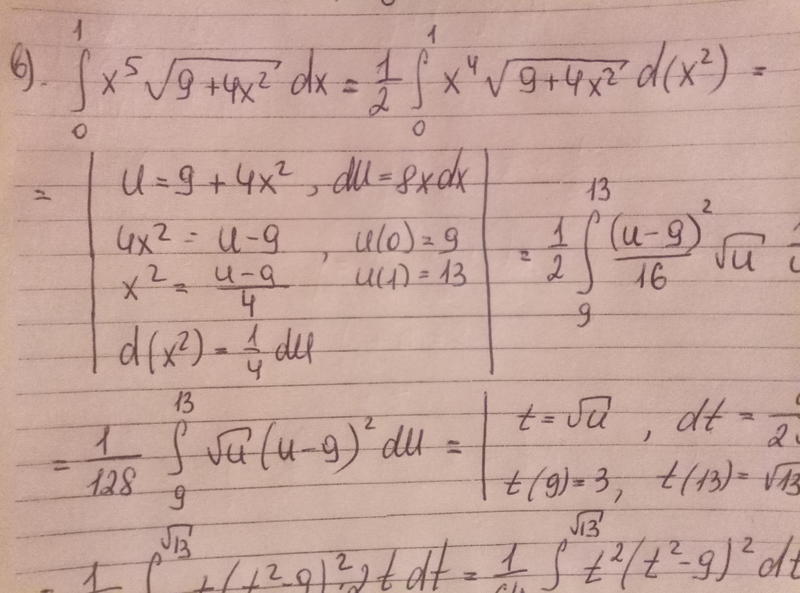 в). ∫₀¹ x⁵ √(9+4x²) dx = 1/2 ∫₀¹ x⁴ √(9+4x²) d(x²) =
= | u = 9 + 4x², du = 8x dx
4x² = u-9, u(0) = 9
x² = (u-9)/4 u(1) = 13
d(x²) = 1/4 du | = 1/2 ∫₉¹³ (u-9)²/16 √u
= 1/128 ∫₉¹³ √u (u-9)² du = | t = √u, dt =
t(9) = 3, t(13) = √13
∫^√13 t(t²-9)²·2t dt = ∫^√13 t²(t²-9)² dt